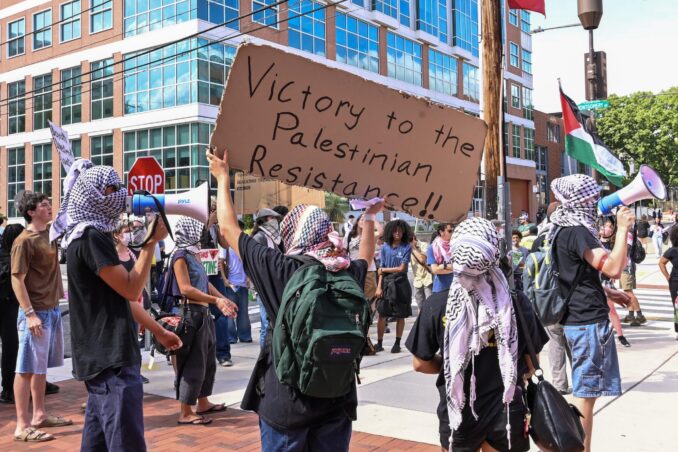 Victory to the
Palestinian
Resistance!!
STOP
PYLE
JANSPORT